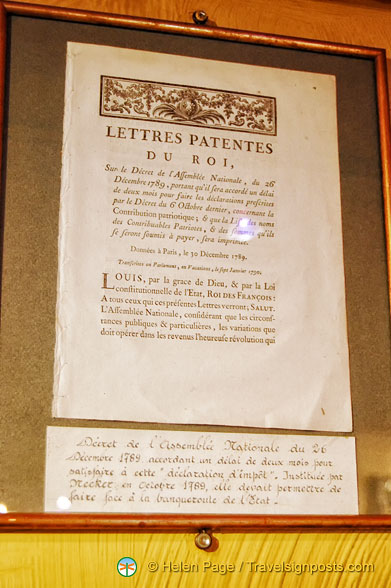 LETTRES PATENTES
DU ROI,
Sur le Décret de l'Assemblée Nationale, du 26
Décembre 1789, portant qu'il sera accordé un délai
de deux mois pour faire les déclarations prescrites
par le Décret du 6 Octobre dernier, concernant la
Contribution patriotique ; & que la noms
des Contribuables Patriotes, & des qu'ils
se seront soumis à payer, sera imprimée.
Données à Paris, le 30 Décembre 1789.
Transcrites en Parlement, en Vacations, le sept Janvier 1790.
LOUIS, par la grace de Dieu, & par la Loi
constitutionnelle de l'Etat, ROI DES FRANÇOIS :
A tous ceux qui ces présentes Lettres verront ; SALUT.
L'Assemblée Nationale, considérant que les circons-
tances publiques & particulières, les variations que
doit opérer dans les revenus l'heureuse révolution qui
Décret de l'Assemblée Nationale du 26
Décembre 1789, accordant un délai de deux mois pour
satisfaire à cette "déclaration d'impôt". Instituée par
Necker, en Octobre 1789, elle devait permettre de
faire face à la banqueroute de l'Etat.
© Helen Page / Travelsignposts.com